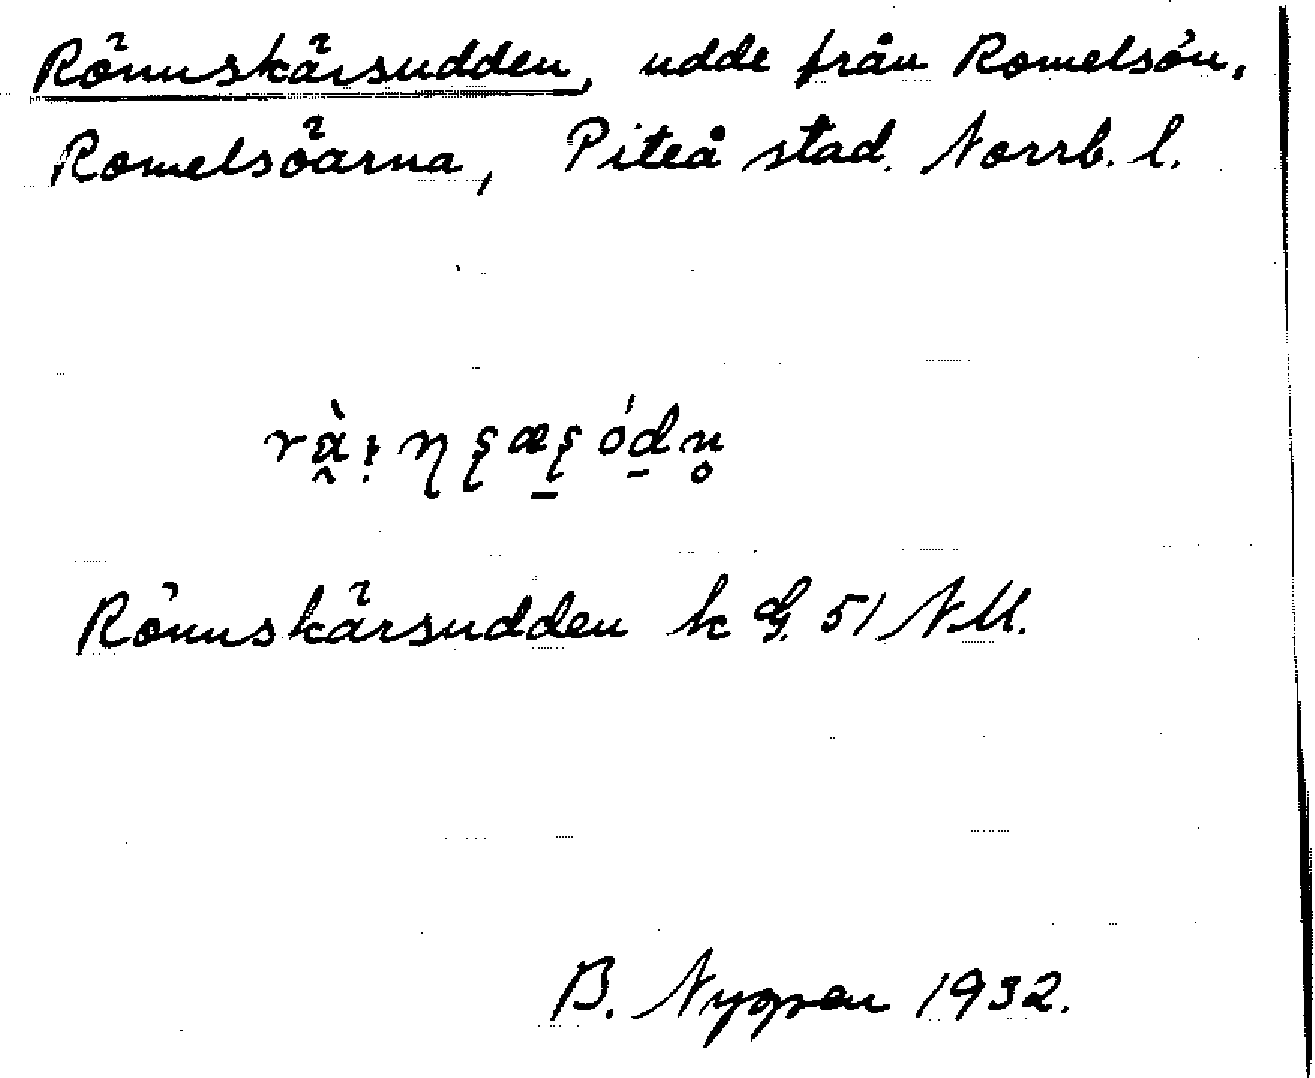 Rönnskärsudden, udde från Romelsön,
Romelsöarna, Piteå stad. Norrb. l.
Rönnskärsudden k G. 51 N.U.
B. Nygren 1932.